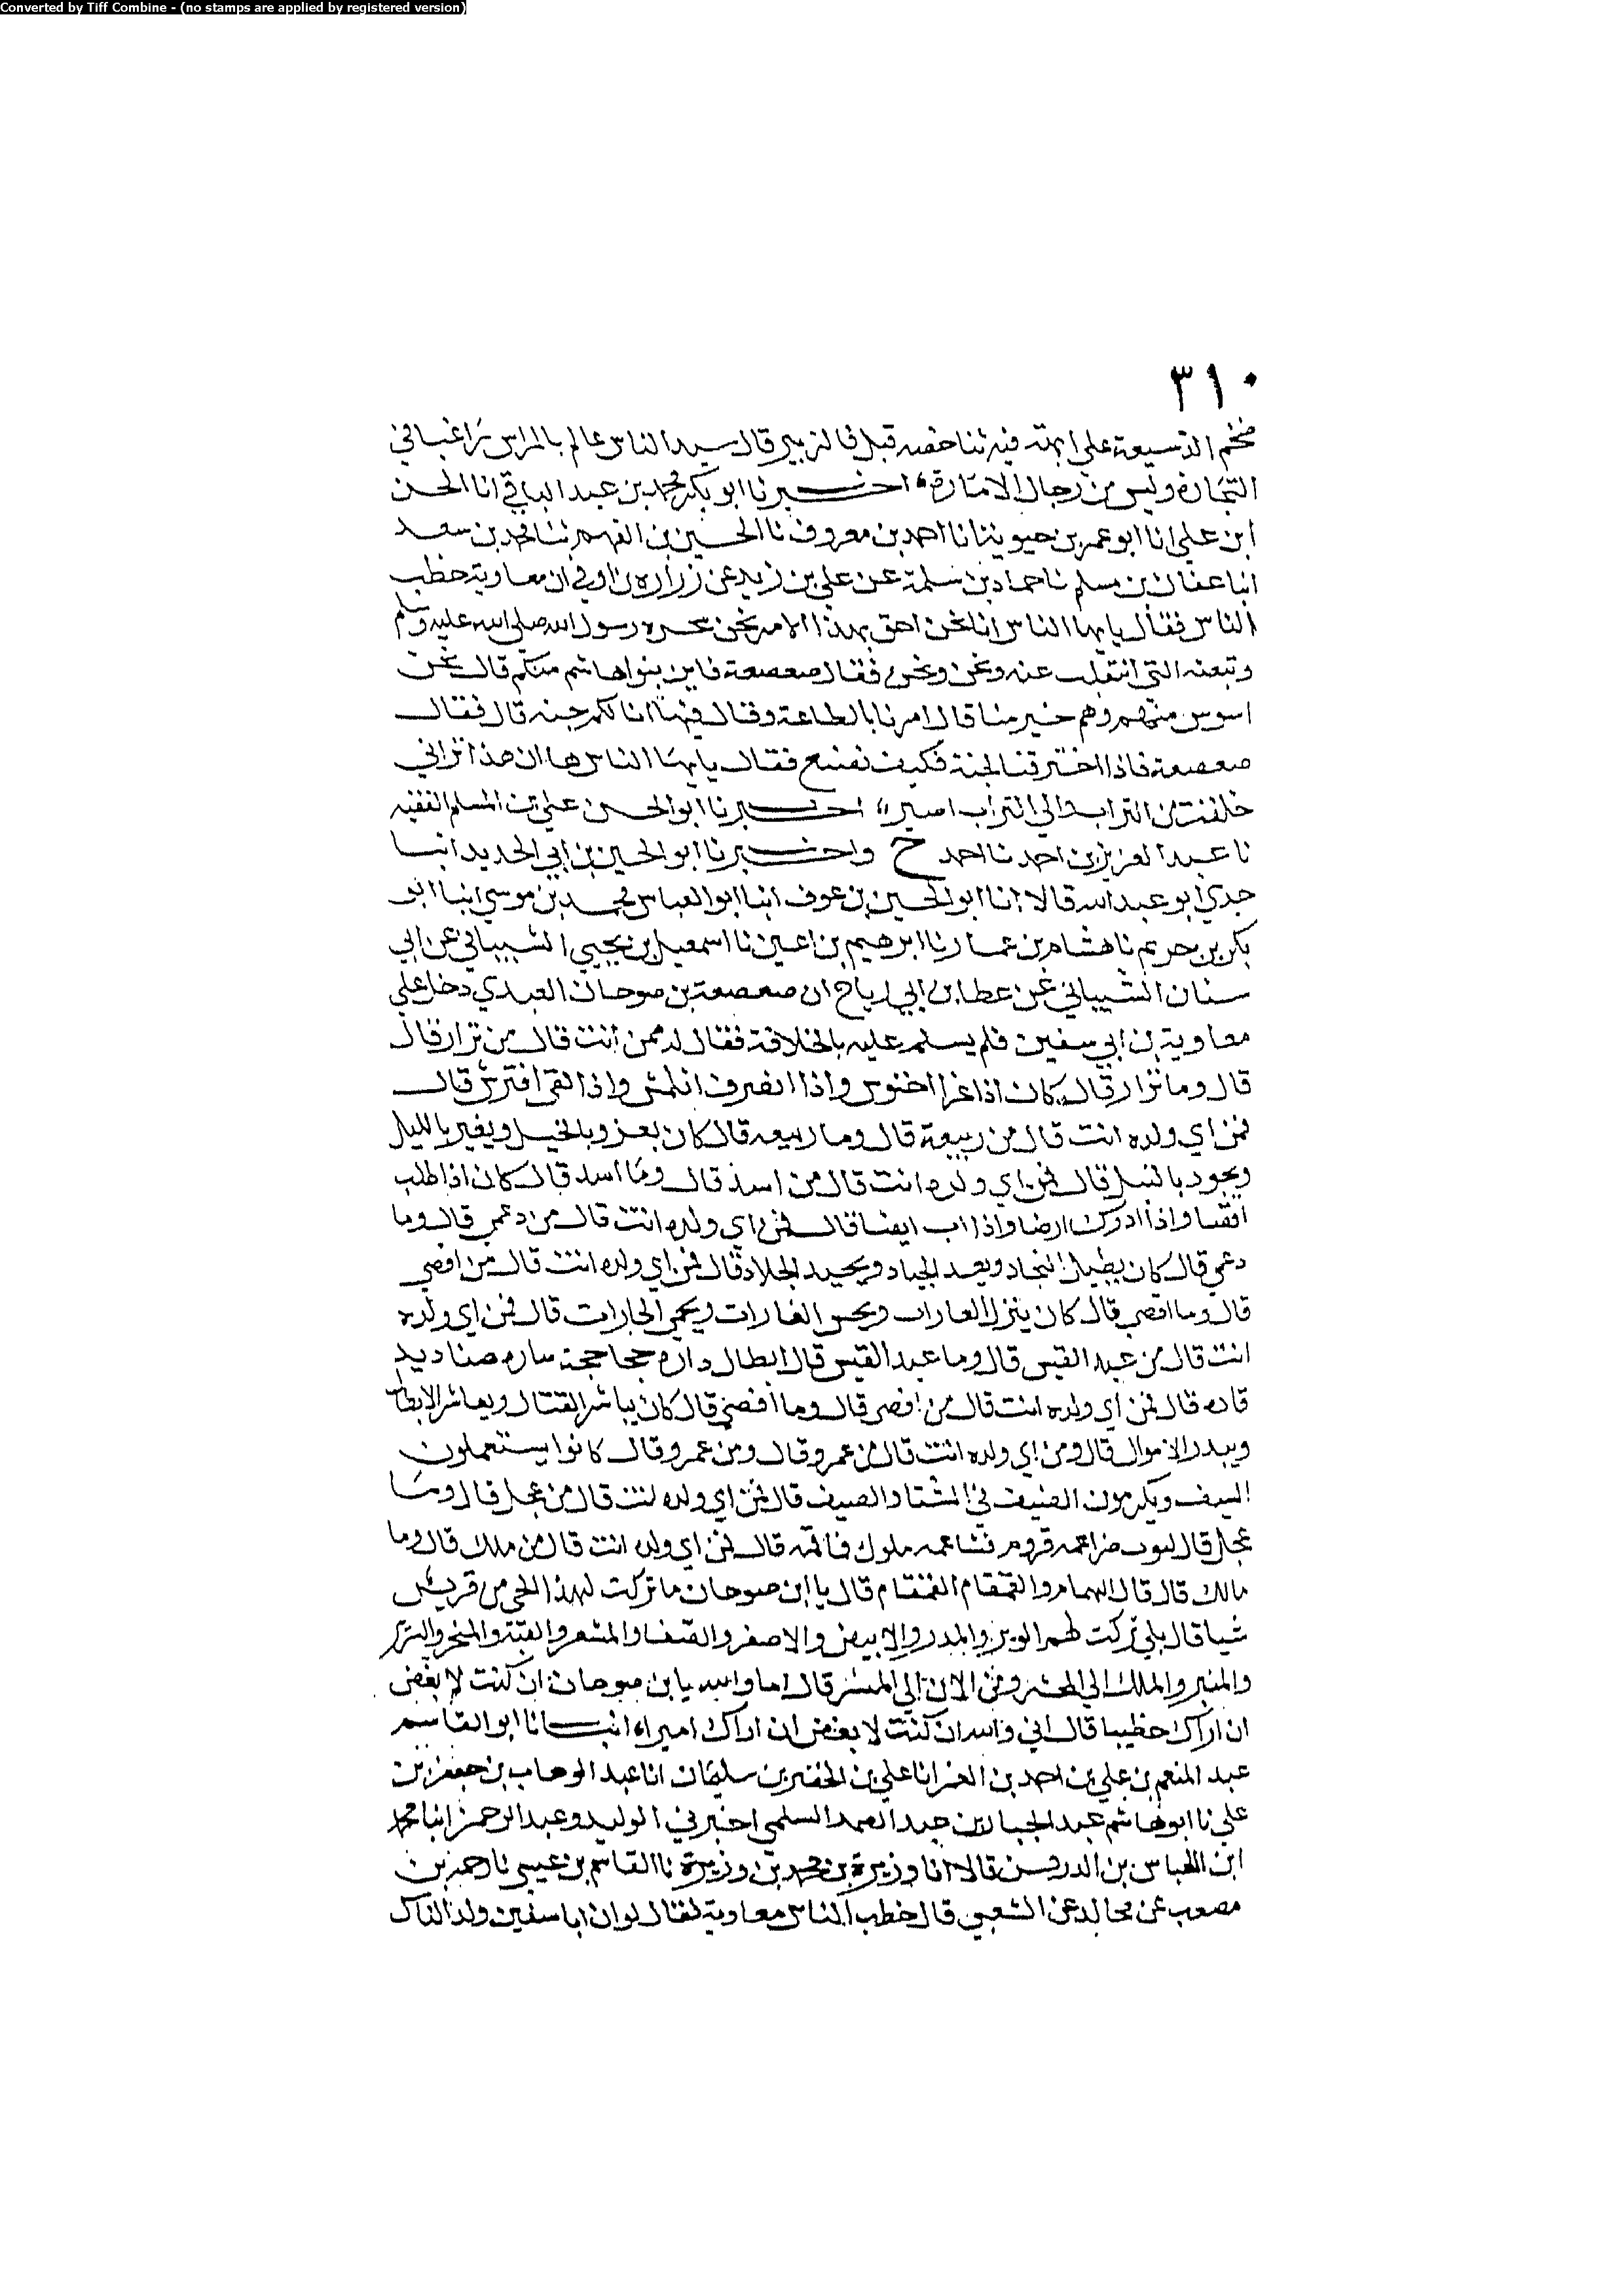 Converted by Tiff Combine - (no stamps are applied by registered version)
٣١٠
ضخم الدسيعة على ابهته فيه ثنا حفصه قبل فالزبير قال سيد الناس عالم بالمراس راغبا في
التجارة وليس من رجال الامارة اخبرنا ابو بكر محمد بن عبد الباقي انا الحسن
ابن علي انا ابو عمر بن حيوية انا احمد بن معروف نا الحسين بن الفهم ثنا محمد بن سعد
انا عفان بن مسلم نا حماد بن سلمة عن علي بن زيد عن زراره بن اوفى ان معاوية خطب
الناس فقال يا يها الناس انا نحن احق بهذا الامر نحن شجره رسول الله صلى الله عليه وسلم
وتبعته التي انتقلب عنه ونحن ونحن فقال صعصعة فاين بنو هاشم منكم قال نحن
اسوس منهم وهم خير منا قال امرنا بالطاعة وقال فيها انا لكم جنه قال فقال
صعصعة فاذا اخترقت الجنة فكيف نصنع فقال يا يها الناس ها ان هذا ترابي
خلقت من التراب والي التراب اصير اخبرنا ابو الحسن علي بن المسلم الفقيه
نا عبد العزيز بن احمد نا احمد ح واخبرنا ابو الحسين بن ابي الحديد انبا
جدي ابو عبد الله قالا انا ابو الحسين بن عوف انبا ابو العباس محمد بن موسي انبا ابو
بكر بن حريم نا هشام بن عمار نا ابرهيم بن اعين نا اسمعيل بن يحيي الشيباني عن ابي
سنان الشيباني عن عطا بن ابي رباح ان صعصعة بن صوحان العبدي دخل علي
معاوية بن ابي سفين فلم يسلم عليه بالخلافة فقال له ممن انت قال من نزار قال
قال وما نزار قال كان اذا غزا اخنوس واذا انصرف انكمش واذا لقي افترش قال
فمن اي ولده انت قال من ربيعة قال وما ربيعه قال كان يعزو بالخيل ويغير بالليل
ويجود بالنيل قال فمن اي ولده انت قال من اسد قال وما اسد قال كان اذا طلب
افضا واذا ادرك ارضا واذا اب ايضا قال فمن اي ولده انت قال من دعمي قال وما
دعمي قال كان يطيل النجاد ويعد الجياد ويجيد الجلاد قال فمن اي ولده انت قال من افصي
قال وما افصي قال كان ينزل العارات ويحس الغارات ويحمي الجارات قال فمن اي ولده
انت قال من عبد القيس قال وما عبد القيس قال ابطال داده ججاحجة ساره صناديد
قاده قال فمن اي ولده انت قال من افصى قال وما افصي قال كان يباشر القتال ويعاشر الابطال
ويبدر الاموال قال ومن اي ولده انت قال من عمرو قال ومن عمرو قال كانوا يستعملون
السيف ويكرمون الضيف في الشتا والصيف قال فمن اي ولده انت قال من عجل قال وما
عجل قال ليوث ضراغمه قروم قشاعمه ملوك فاقمه قال فمن اي ولده انت قال من ملك قال وما
مالك قال قال الهمام والقمقام القمقام قال يا ابن صوحان ما تركت لهذا الحي من قريش
شيا قال بلي تركت لهم الوبر والمدر والابيض والاصفر والصفا والمشعر والقبة والمنخر والسرير
والمنبر والملك الي المحشر ومن الان الي المنشر قال اما والله يا بن صوحان ان كنت لابغض
ان اراك خطيبا قال اني والله ان كنت لابغض ان اراك اميرا انبانا ابو القاسم
عبد المنعم بن علي بن احمد بن الغمر انا علي بن الخضر بن سليمان انا عبد الوهاب بن جعفر بن
علي نا ابو هاشم عبد الجبار بن عبد الصمد السلمي اخبرني الوليد وعبد الرحمن انبا محمد
ابن العباس بن الدرفس قالا انا وزيرة بن محمد بن وزيرة نا القاسم بن عيسي نا رحمة بن
مصعب عن مجالد عن الشعبي قال خطب الناس معاوية فقال لو ان ابا سفين ولد الناس